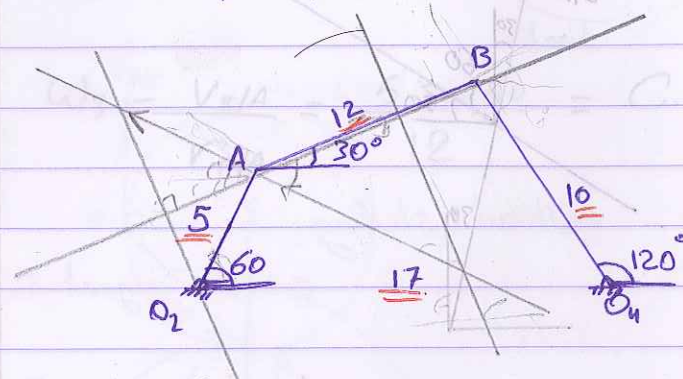 B
12
A
30°
5
10
60
17
120°
O₂
O₄